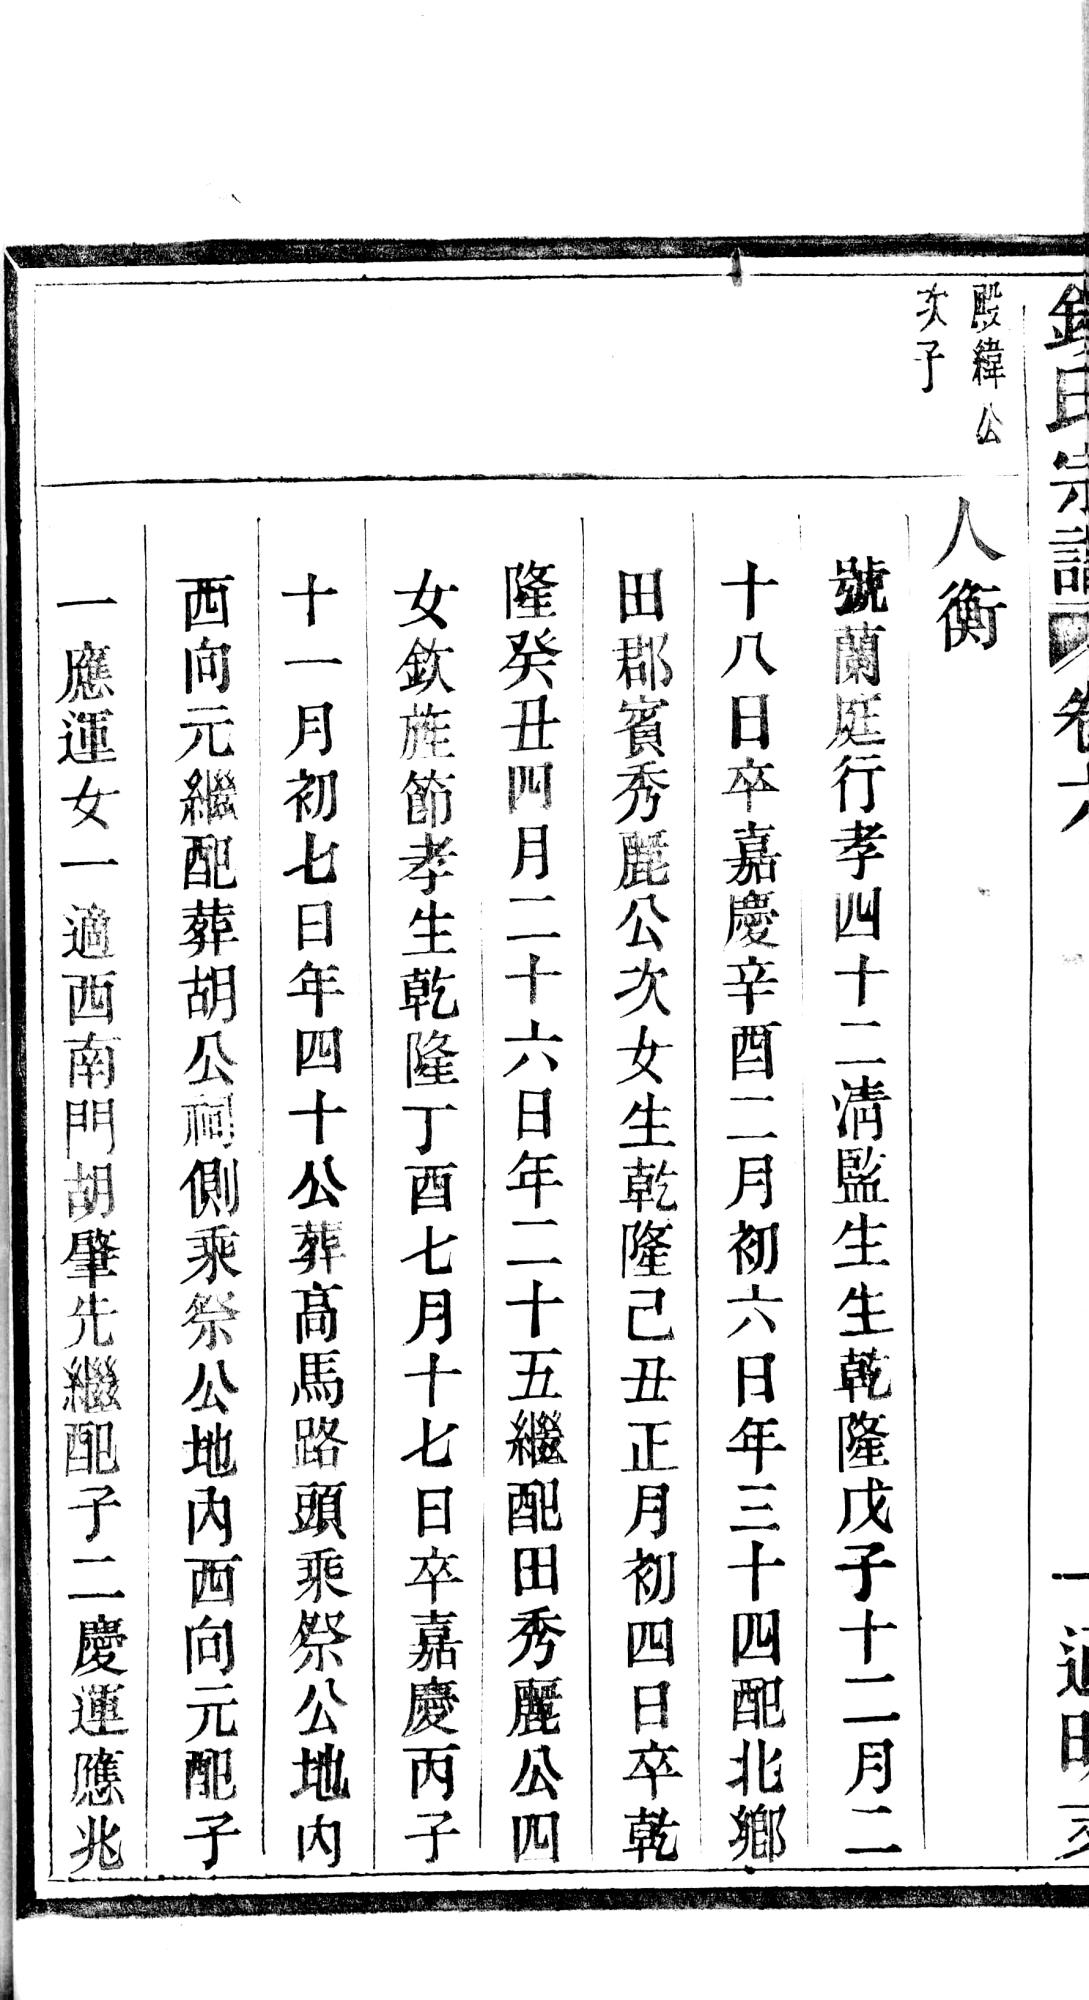 氏宗譜 卷六 一
殿緯公
次子
人衡
號蘭庭行孝四十二清監生生乾隆戊子十二月二
十八日卒嘉慶辛酉二月初六日年三十四配北鄉
田郡賓秀麗公次女生乾隆己丑正月初四日卒乾
隆癸丑四月二十六日年二十五繼配田秀麗公四
女欽旌節孝生乾隆丁酉七月十七日卒嘉慶丙子
十一月初七日年四十公葬高馬路頭乘祭公地內
西向元繼配葬胡公祠側乘祭公地內西向元配子
一應運女一適西南門胡肇先繼配子二慶運應兆